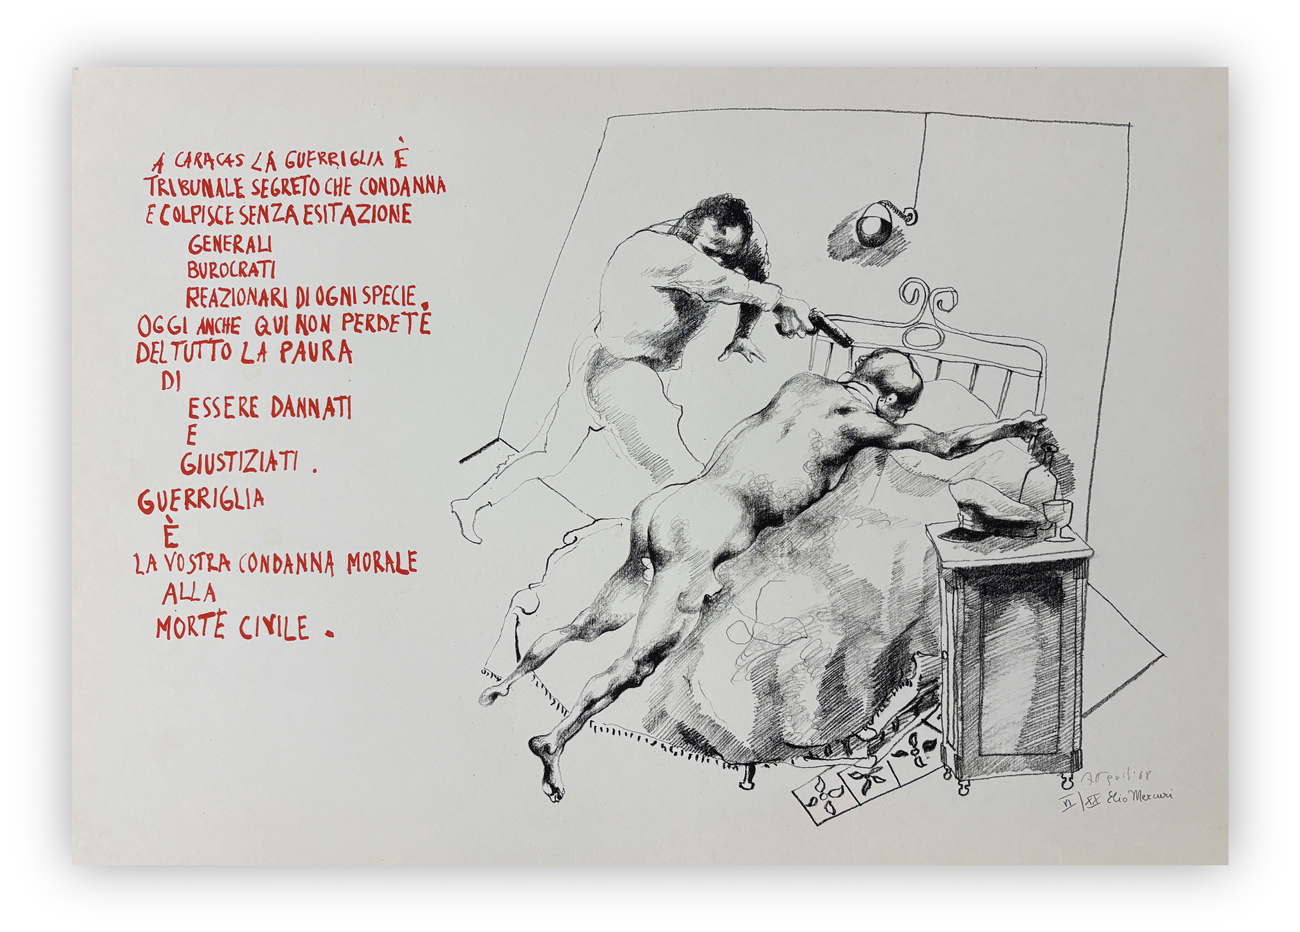 A CARACAS LA GUERRIGLIA È
TRIBUNALE SEGRETO CHE CONDANNA
E COLPISCE SENZA ESITAZIONE
GENERALI
BUROCRATI
REAZIONARI DI OGNI SPECIE.
OGGI ANCHE QUI NON PERDETE
DEL TUTTO LA PAURA
DI
ESSERE DANNATI
E
GIUSTIZIATI.
GUERRIGLIA
È
LA VOSTRA CONDANNA MORALE
ALLA
MORTE CIVILE.
VI/XX Elio Mercuri